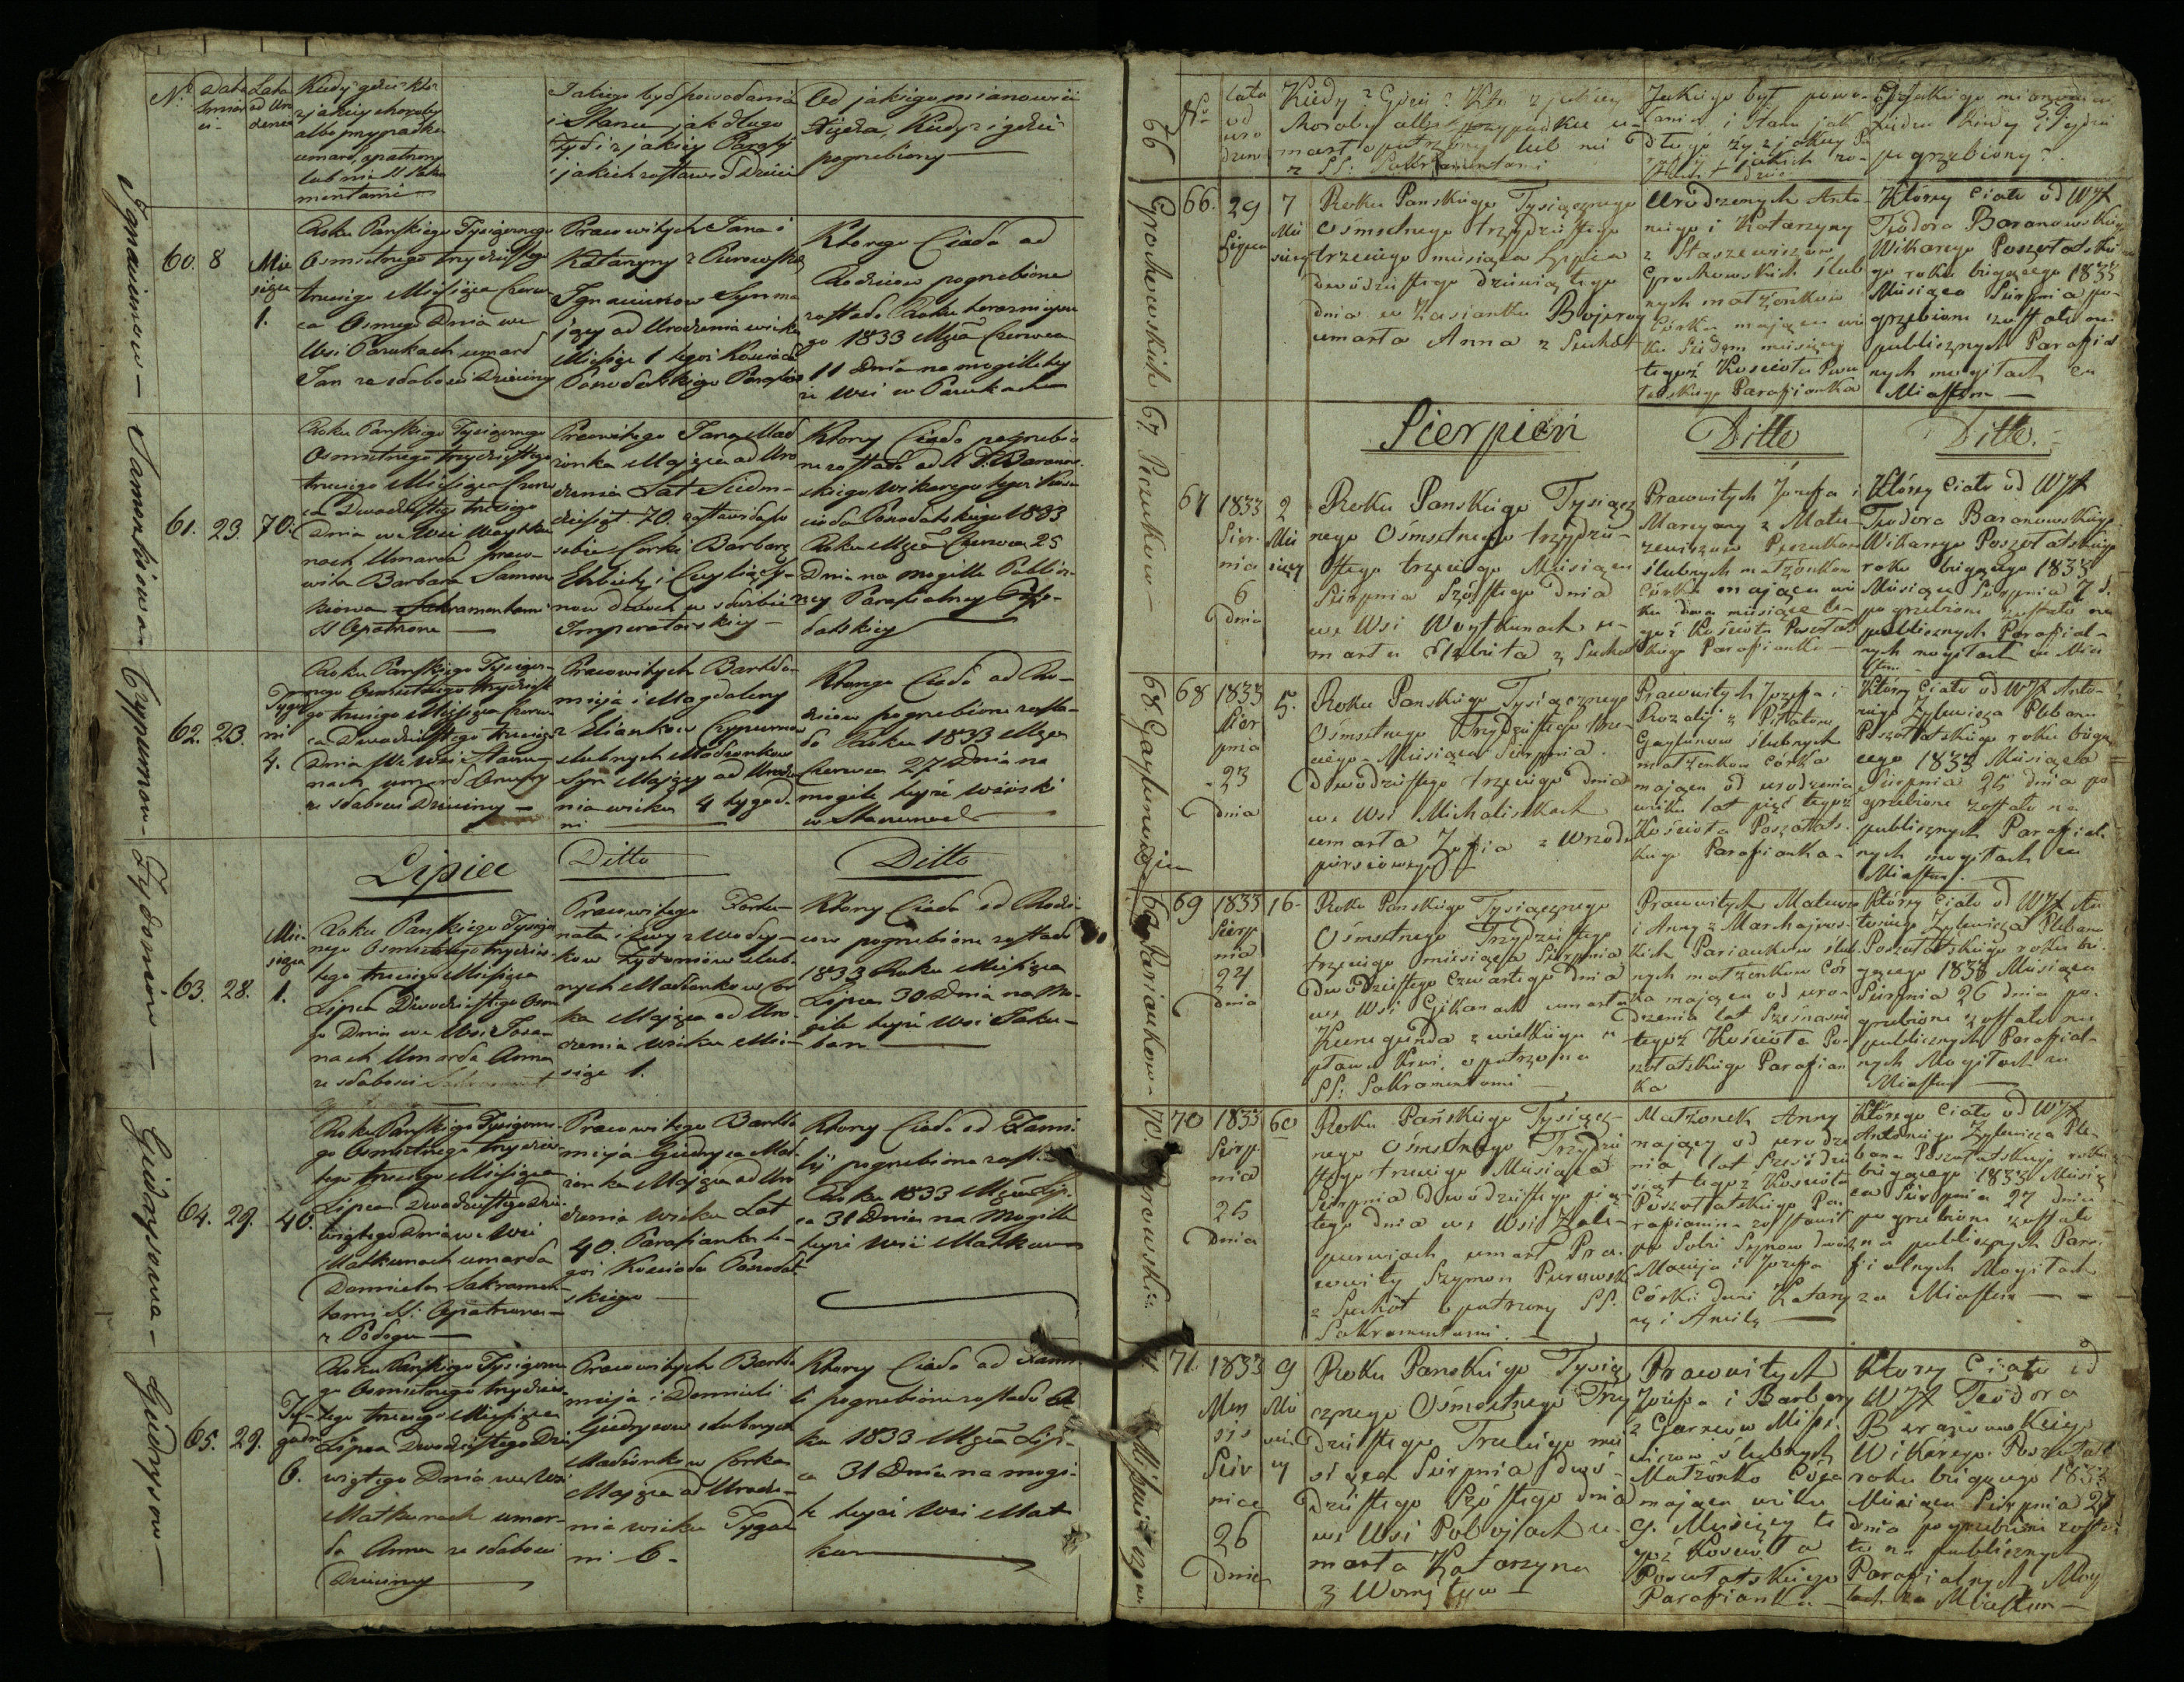 Nr
Data
Lata
od Uro
dzenia
Kiedy gdzie kto
z jakiey choroby
albo przypadku
umarł, opatrzony
lub nie SS Sakra
mentami
Jakiego był powołania
i Stanu jak długo
żył i z jakiey Parafij
i jakich zostawił Dzieci
Od jakiego mianowicie
Xiędza, Kiedy i gdzie
pogrzebiony
60. 8
Mie
siąca
1.
Roku Pańskiego Tysiącznego
Osmsetnego trzydziestego
trzeciego Miesiąca Czerw
ca Osmego Dnia we
Wsi Parukach umarł
Jan ze słabości Dziecinny
Pracowitych Jana i
Katarzyny z Purowskich
Ignaciunow Syn ma
jący od Urodzenia wieku
Miesiąc 1 tegoż Kościoła
Poszołatskiego Parafian
Ktorego Ciało od
Rodzicow pogrzebione
zostało Roku teraźnieysze
go 1833 Mca Czerwca
11 Dnia na mogiłkach
że Wsi w Parukach
61. 23. 70.
Roku Pańskiego Tysiącznego
Osmsetnego trzydziestego
trzeciego Miesiąca Czerw
ca Dwudziestego trzeciego
Dnia we Wsi Woytku
nach Umarła praco
wita Barbara Samon
kiowa Sakramentami
SS Opatrzona
Pracowitego Jana Mał
żonka Mająca od Uro
dzenia Lat Siedm
dziesiąt 70. zostawiła po
sobie Corki Barbarę
Elżbietę i Cecylią Sy
now dwoch w służbie
Imperatorskiey
Ktorey Ciało pogrzebio
ne zostało od X T. Baranow
skiego Wikarego tegoż Kości
oła Poszołatskiego 1833
Roku Mca Czerwca 25
Dnia na mogiłkach Publicz
ney Parafialney Poszo
łatskiey
62. 23.
Tygo
dni
4.
Roku Pańskiego Tysiącz
nego Osmsetnego trzydziest
go trzeciego Miesiąca Czerw
ca Dwudziestego trzeciego
Dnia We Wsi Stanu
nach umarł Onufry
ze słabości Dziecinny
Pracowitych Bartło
mieja i Magdaleny
z Uliankow Czypurnow
slubnych Małżonkow
Syn Mający od Urodze
nia wieku 4 tygod
ni
Ktorego Ciało od Ro
dzicow pogrzebione zosta
ło Roku 1833 Mca
Czerwca 27 Dnia na
mogiłk teyże Wioski
w Stanunach
Lipiec
Ditto
Ditto
63. 28.
Mie
siąca
1.
Roku Pańskiego Tysiącz
nego Osmsetnego trzydzies
tego trzeciego Miesiąca
Lipca Dwudziestego Osme
go Dnia we Wsi Jasa
nach Umarła Anna
ze słabości
Pracowitego Fortu
nata i Ewy z Wody
kow Żydoniow slub
nych Małżonkow Cor
ka Mająca od Uro
dzenia Wieku Mie
siąc 1.
Ktorey Ciało od Rodzi
cow pogrzebione zostało
1833 Roku Miesiąca
Lipca 30 Dnia na Mo
giłk teyże Wsi
64. 29. 40.
Roku Pańskiego Tysiączne
go Osmsetnego trzydzies
tego trzeciego Miesiąca
Lipca Dwudziestego Dzie
wiątego Dnia we Wsi
Matkunach umarła
Danniela Sakramen
tami SS. Opatrzona
z Połogu
Pracowitego Bartło
mieja Giedrysa Mał
żonka Mająca od Uro
dzenia Wieku Lat
40. Parafianka te
goż Kościoła Poszołat
skiego
Ktorey Ciało od Fami
lij pogrzebione zostało
Roku 1833 Mca Lip
ca 31 Dnia na Mogiłk
teyże Wsi Matkunach
65. 29.
Ty
godni
6.
Roku Pańskiego Tysiączne
go Osmsetnego trzydzies
tego trzeciego Miesiąca
Lipca Dwudziestego Dzie
wiątego Dnia we Wsi
Matkunach umar
ła Anna ze słabości
Dziecinny
Pracowitych Bartło
mieja i Dannieli
Giedrysow slubnych
Małżonkow Corka
Mająca od Urodze
nia wieku Tygod
ni 6
Ktorey Ciało od Fami
li pogrzebione zostało Ro
ku 1833 Mca Lip
ca 31 Dnia na mogi
łk teyże Wsi Mat
kun
Ignaciunow
Samonkiowa
Czypurnow
Żydoniow
Giedrysowa
Giedrysow
No
Lata
od
uro
dzenia
Kiedy? Gdzie? Kto z jakiey
choroby albo przypadku u
marł opatrzony lub nie
z SS: Sakramentami
Jakiego był powo
łania i Stanu jak
długo żył z jakiey Pa
rafij i jakich zo
stawił dzieci
Od jakiego mianowicie
Xiędza kiedy i gdzie
pogrzebiony?
66. 29
Lipca
7
Mie
sięcy
Roku Pańskiego Tysiącznego
Ośmsetnego trzydziestego
trzeciego miesiąca Lipca
dwódziestego dziewiątego
dnia w Zaścianku Bojary
umarła Anna z Suchot
Urodzonych Anto
niego i Katarzyny
z Staszewiczow
Grochowskich ślub
nych małżonkow
Córka mająca wie
ku Siedem miesięcy
tegoż Kościoła Poszo
łatskiego Parafianka
Którey Ciało od WJX
Teodora Baranowskiego
Wikarego Poszołatskie
go roku bieżącego 1833
Miesiąca Sierpnia po
grzebione zostało na
publicznych Parafial
nych mogiłach za
Miastem
Sierpień
Ditto
Ditto.
67 1833
Sier
pnia
6
Dnia
2
Mie
sięcy
Roku Pańskiego Tysiącz
nego Ośmsetnego trzydzie
stego trzeciego Miesiąca
Sierpnia Szóstego dnia
we Wsi Woytkunach u
marła Elżbieta z Suchot
Pracowitych Jozefa i
Maryany z Matu
zewiczow Peczukow
ślubnych małżonkow
Córka mająca wie
ku dwa miesiące te
goż Kościoła Poszołat
skiego Parafianka
Którey Ciało od WJX
Teodora Baranowskiego
Wikarego Poszołatskiego
roku bieżącego 1833
Miesiąca Sierpnia 7 d.
pogrzebione zostało na
publicznych Parafial
nych mogiłach za Mia
stem
68 1833
Sier
pnia
23
Dnia
5.
Roku Pańskiego Tysiącznego
Ośmsetnego Trzydziestego trze
ciego Miesiąca Sierpnia
dwódziestego trzeciego dnia
we Wsi Michaliszkach
umarła Zofia z Wrzodu
piersiowego
Pracowitych Jozefa i
Rozalij z Pisatow
Gaytunow ślubnych
małżonkow córka
mająca od urodzenia
wieku lat pięć tegoż
Kościoła Poszołats
kiego Parafianka
Którey Ciało od WJX Anto
niego Żylewicza Plebana
Poszołatskiego roku bieżą
cego 1833 Miesiąca
Sierpnia 25 dnia po
grzebione zostało na
publicznych Parafial
nych mogiłach za
Miastem
69 1833
Sierp
nia
24
Dnia
16
Roku Pańskiego Tysiącznego
Ośmsetnego Trzydziestego
trzeciego miesiąca Sierpnia
Dwódziestego Czwartego dnia
we Wsi Gikanach umarła
Kunegunda z wielkiego u
pławu Krwi, opatrzona
SS: Sakramentami
Pracowitych Mateusza
i Anny z Marchajtus
kich Pariaukow ślub
nych małżonkow Cór
ka mająca od uro
dzenia lat Szesnaście
tegoż Kościoła Po
szołatskiego Parafian
ka
Którey Ciało od WJX An
toniego Żylewicza Plebana
Poszołatskiego roku bie
żącego 1833 Miesiąca
Sierpnia 26 dnia po
grzebione zostało na
publicznych Parafial
nych Mogiłach za
Miastem
70 1833
Sierp
nia
25
Dnia
60
Roku Pańskiego Tysiącz
nego Ośmsetnego Trzydzie
stego trzeciego Miesiąca
Sierpnia dwódziestego pią
tego dnia we Wsi Zale
purwiach umarł Pra
cowity Szymon Purowski
z Suchot opatrzony SS.
Sakramentami
Małżonek Anny
mający od urodze
nia lat Sześćdzie
siąt tegoż Kościoła
Poszołatskiego Pa
rafianin zostawił
po Sobie Synow dwóch
Macieja i Jozefa
Córki dwie Katarzy
nę i Anielę
Którego Ciało od WJX
Antoniego Żylewicza Ple
bana Poszołatskiego roku
bieżącego 1833 Miesią
ca Sierpnia 27 dnia
pogrzebione zostało
na publicznych Para
fialnych Mogiłach
za Miastem
71. 1833
Mie
sią
Sier
pnia
26
Dnia
9
Mie
sięcy
Roku Pańskiego Tysią
cznego Ośmsetnego Trzy
dziestego Trzeciego mie
siąca Sierpnia dwó
dziestego Szóstego dnia
we Wsi Pobojach u
marła Katarzyna
z Womitow
Pracowitych
Jozefa i Barbary
z Garnow Misie
wiczow ślubnych
Małżonko Córa
mająca wieku
9. Miesięcy te
goż Kościoła
Poszołatskiego
Parafianka
Ktorey Ciało od
WJX Teodora
Baranowskiego
Wikarego Poszołats
roku bieżącego 1833
Miesiąca Sierpnia 27
dnia pogrzebione zosta
ło na publicznych
Parafialnych Mog
łach za Miastem
66 Grochowskich
67. Peczukow
68. Gaytunowien
69 Pariaukow
70. Purowskich
71. Misiewiczow